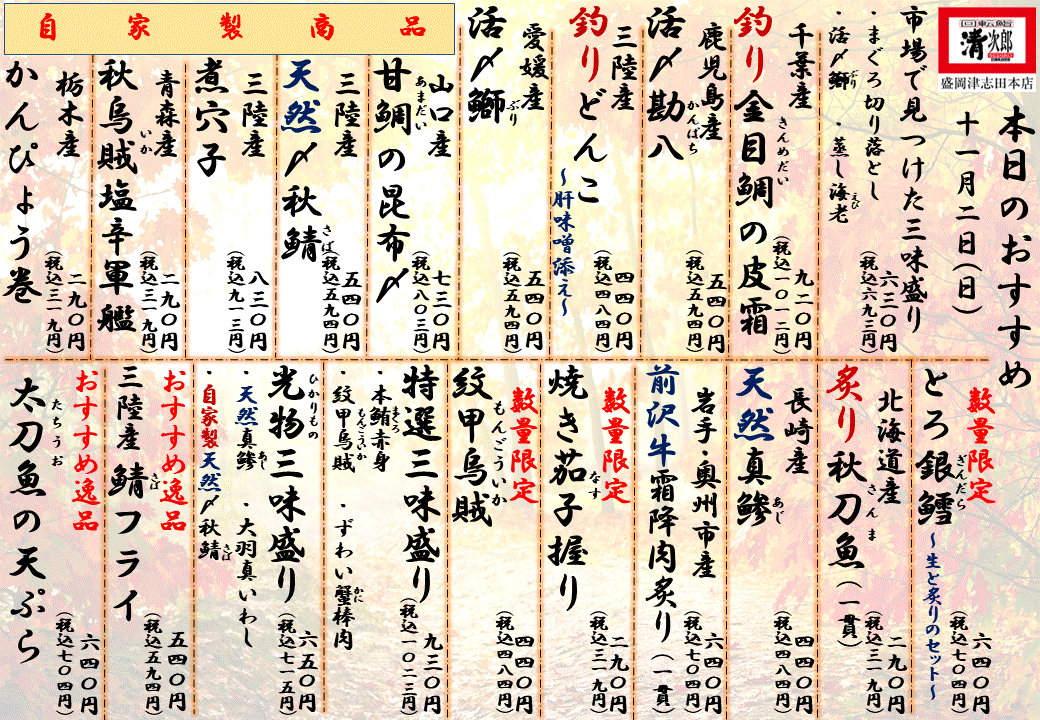 回転鮨
清次郎
盛岡津志田本店
本日のおすすめ
十一月二日(日)
市場で見つけた三味盛り
・まぐろ切り落とし
・活〆鰤 ・蒸し海老
ぶり
えび
六三〇円
(税込六九三円)
千葉産
釣り金目鯛の皮霜
きんめだい
九二〇円
(税込一〇一二円)
鹿児島産
活〆勘八
かんぱち
五四〇円
(税込五九四円)
三陸産
釣りどんこ
~肝味噌添え~
四四〇円
(税込四八四円)
愛媛産
活〆鰤
ぶり
五四〇円
(税込五九四円)
自家製商品
山口産
甘鯛の昆布〆
あまだい
七三〇円
(税込八〇三円)
三陸産
天然〆秋鯖
さば
五四〇円
(税込五九四円)
三陸産
煮穴子
八三〇円
(税込九一三円)
青森産
秋烏賊塩辛軍艦
いか
二九〇円
(税込三一九円)
栃木産
かんぴょう巻
二九〇円
(税込三一九円)
数量限定
とろ銀鱈
ぎんだら
~生と炙りのセット~
六四〇円
(税込七〇四円)
北海道産
炙り秋刀魚(一貫)
さんま
二九〇円
(税込三一九円)
長崎産
天然真鯵
あじ
四四〇円
(税込四八四円)
岩手・奥州市産
前沢牛霜降肉炙り(一貫)
六四〇円
(税込七〇四円)
数量限定
焼き茄子握り
なす
二九〇円
(税込三一九円)
数量限定
紋甲烏賊
もんごういか
四四〇円
(税込四八四円)
特選三味盛り
・本鮪赤身 ・ずわい蟹棒肉
まぐろ
かに
・紋甲烏賊
もんごういか
九三〇円
(税込一〇二三円)
光物三味盛り
ひかりもの
・天然真鯵 ・大羽真いわし
あじ
・自家製天然〆秋鯖
さば
六五〇円
(税込七一五円)
おすすめ逸品
三陸産 鯖フライ
さば
五四〇円
(税込五九四円)
おすすめ逸品
太刀魚の天ぷら
たちうお
六四〇円
(税込七〇四円)